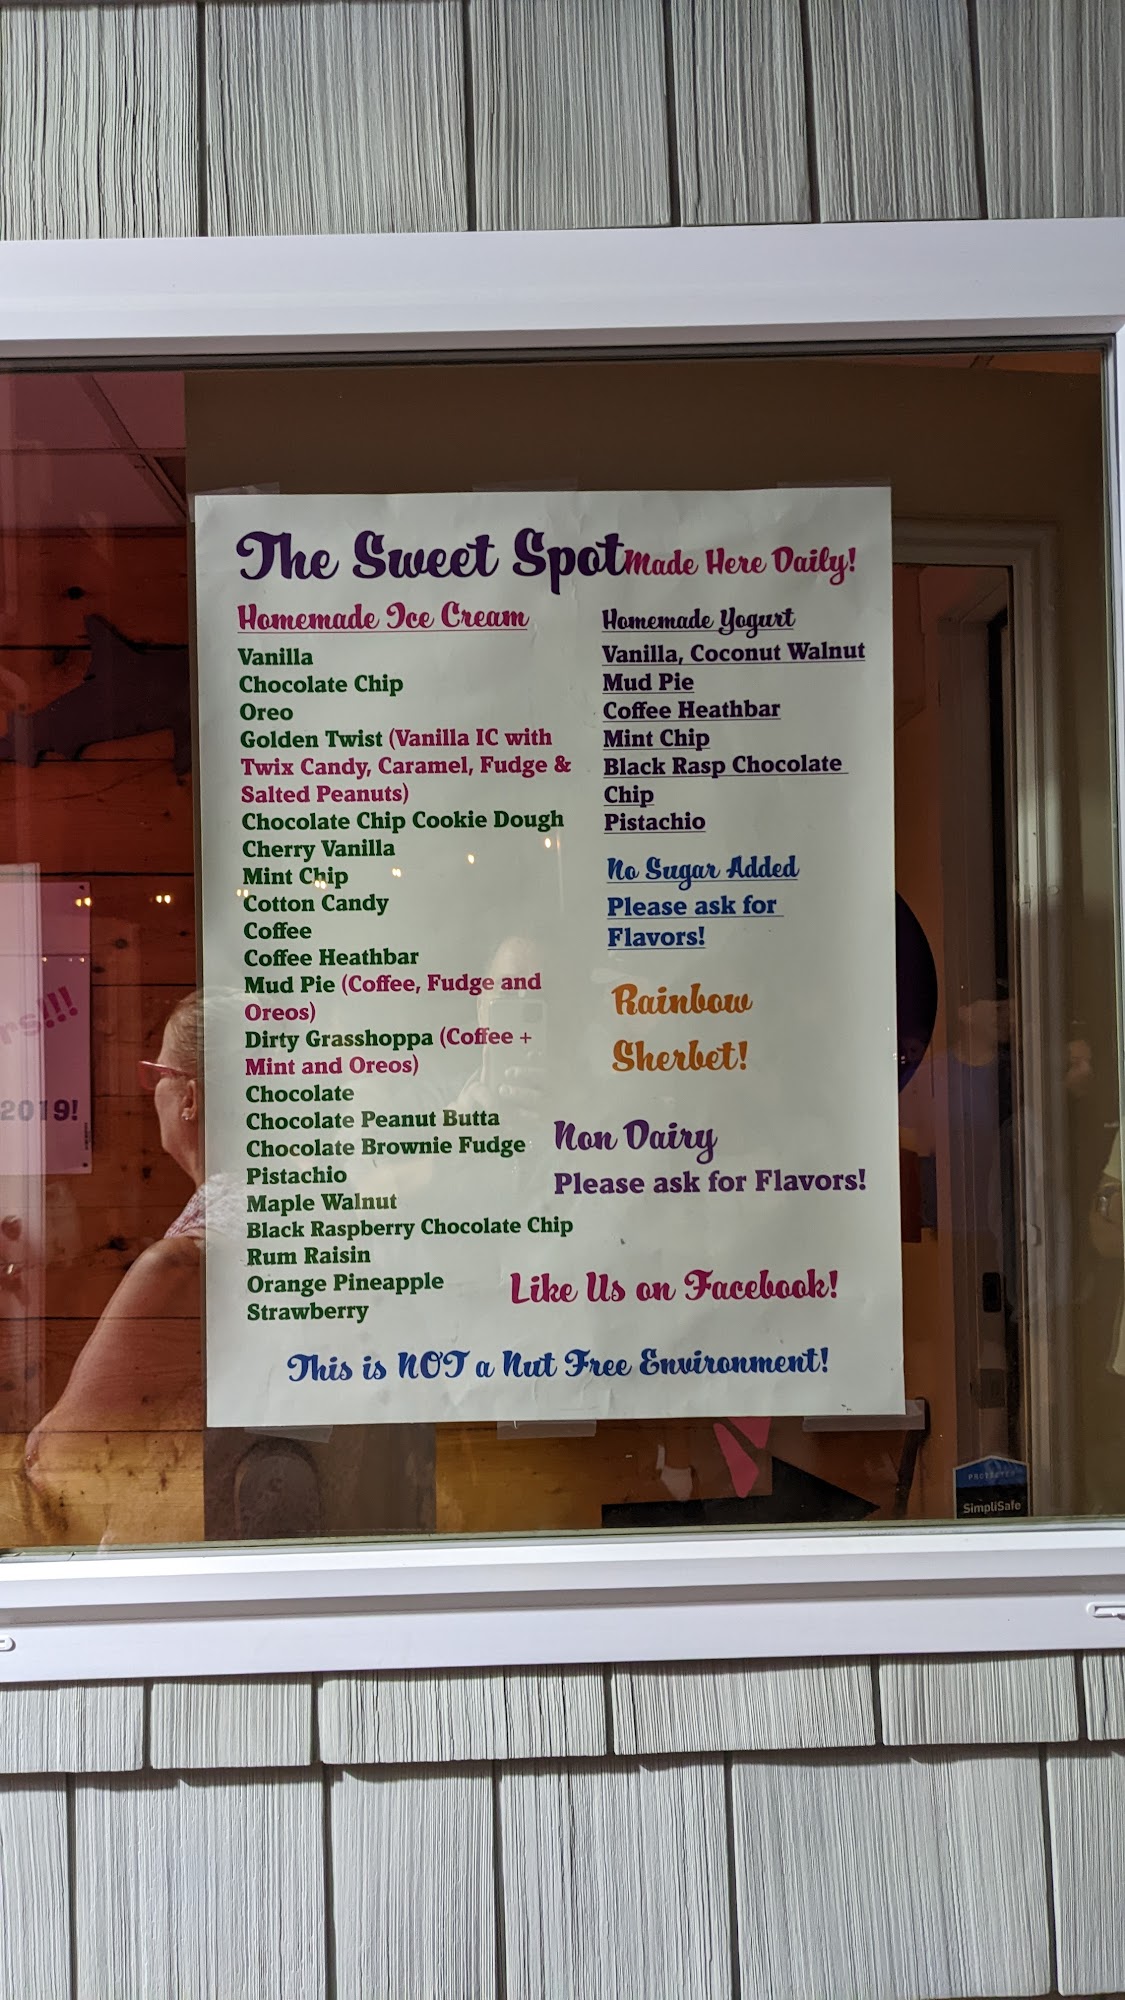 The Sweet Spot Made Here Daily!
Homemade Ice Cream
Vanilla
Chocolate Chip
Oreo
Golden Twist (Vanilla IC with
Twix Candy, Caramel, Fudge &
Salted Peanuts)
Chocolate Chip Cookie Dough
Cherry Vanilla
Mint Chip
Cotton Candy
Coffee
Coffee Heathbar
Mud Pie (Coffee, Fudge and
Oreos)
Dirty Grasshoppa (Coffee +
Mint and Oreos)
Chocolate
Chocolate Peanut Butta
Chocolate Brownie Fudge
Pistachio
Maple Walnut
Black Raspberry Chocolate Chip
Rum Raisin
Orange Pineapple
Strawberry
Homemade Yogurt
Vanilla, Coconut Walnut
Mud Pie
Coffee Heathbar
Mint Chip
Black Rasp Chocolate
Chip
Pistachio
No Sugar Added
Please ask for
Flavors!
Rainbow
Sherbet!
Non Dairy
Please ask for Flavors!
Like Us on Facebook!
This is NOT a Nut Free Environment!
2019!
PROTECTED
SimpliSafe